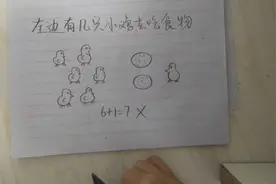 左边有几只小鸡去吃食物
6+1=7 ×